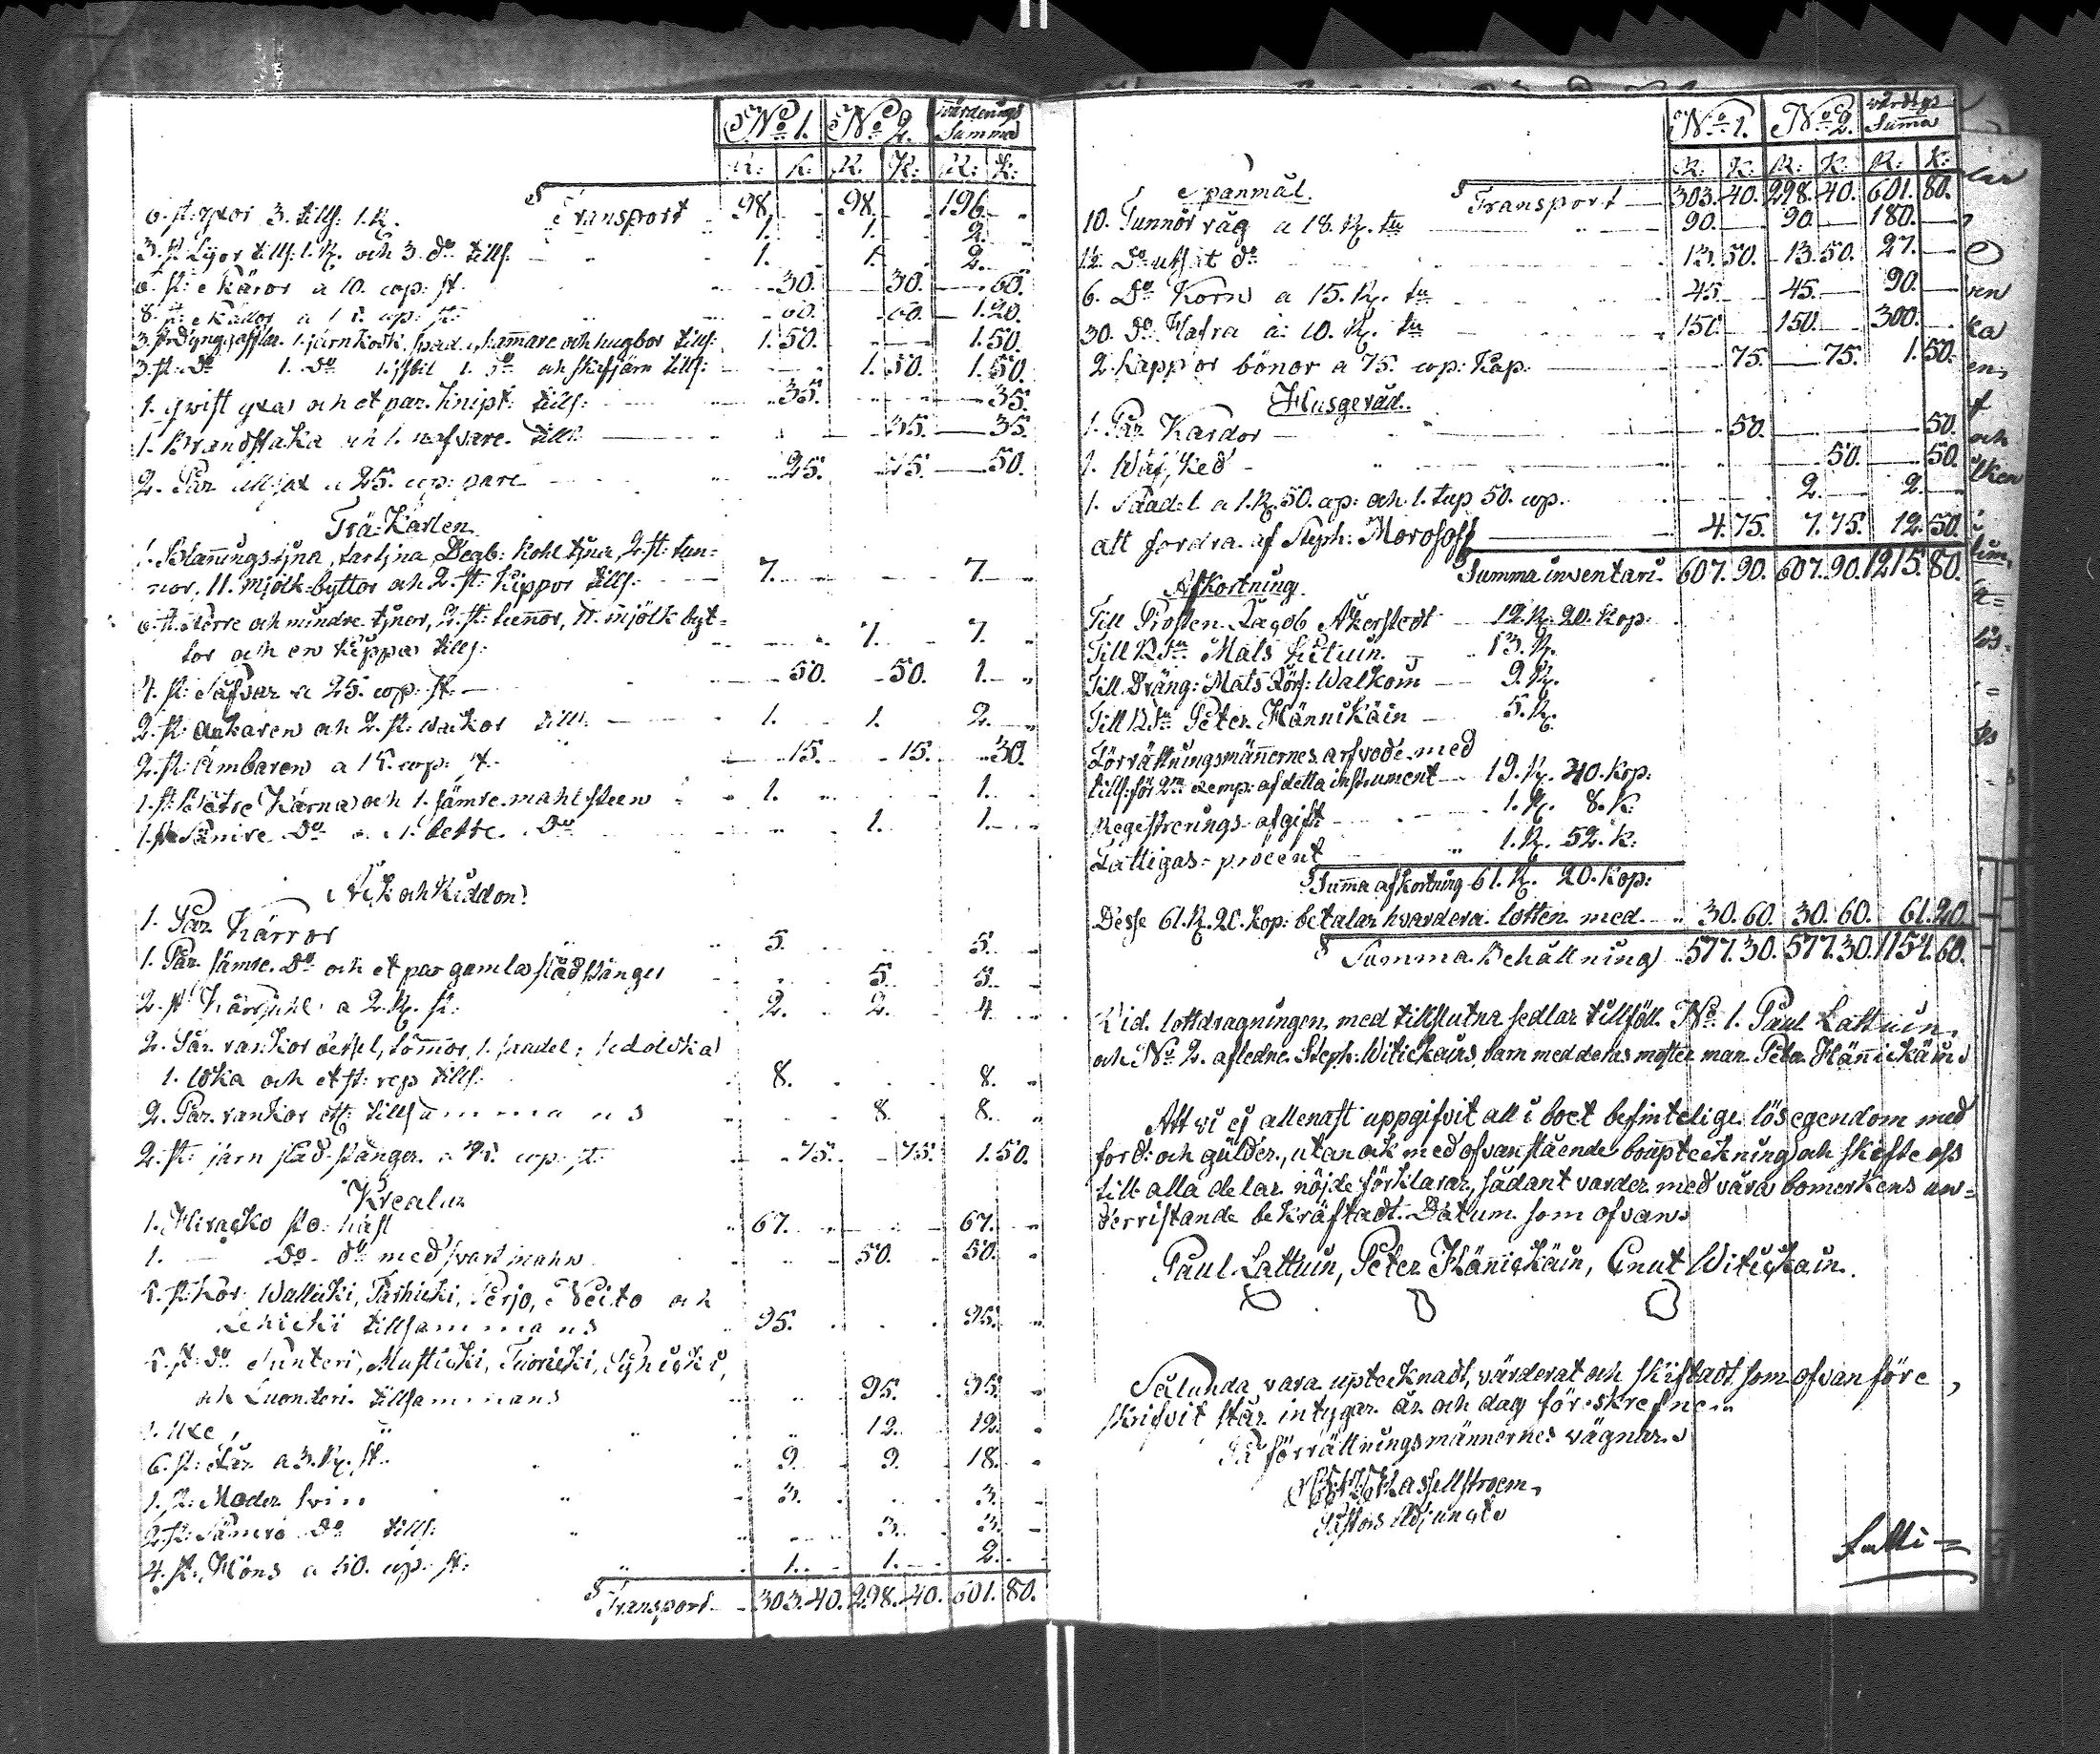 No 1. No 2. Värderings Summa
R: K: R: K: R: K:
Transport 98. 98. 196.
6. st: yxor 3. tills: 1. R. 1. 1. 2.
3. st Lijor tills: 1. R. och 3. do tills: 1. 1. 2.
6. st: Skäror a 10. cop: st. 30. 30. 60.
8. st: a 15. cop: st: 60. 60. 1.20.
3. st: Dynggafflar. 1. järnkrok, spad, hammare och hugbor tills: 1.50. 1.50.
3. st: do 1. do 1. do och skafjärn tills: 1.50. 1.50.
1. yxa och et par. Knipt: tills: 35. 35.
1. Brandstaka och 1. nafvare. tills: 35. 35.
2. Par ullsax a 25. cop: paret 25. 25. 50.
Trä: Kärlen.
1. tjna, tjna Degb: Kohl tjna, 2. st: tun=
nor, 11. mjölk-byttor och 2. st: Kippor tills: 7. 7.
6. st. större och mindre tjnor, 2. st: tunnor, mjölk byt=
tor och en kippa tills: 7. 7.
4. st: Såfvar a 25. cop: st. 50. 50. 1.
2. st: ankaren och 2. st. tills: 1. 1. 2.
2. st: Ämbaren a 15. cop: st. 15. 15. 30.
1. st: Bättre Kärna och 1. sämre mahlsteen 1. 1.
1. st Sämre do o. 1. bettr. do 1. 1.
Åk och Riddon:
1. Par Kärror 5. 5.
1. Par sämre. do och et par gamla städstänger 5. 5.
2. st Kärrhiul a 2. R. st. 2. 2. 4.
2. Par. rankor, tömmor, 1. saadel,
1. loka och et st: rep tills: 8. 8.
2. Par. rankor etc tillsammans 8. 8.
2. st: järn städ stänger a 75. cop: st: 75. 75. 1.50.
Kreatur
1. häst 67. 67.
1. do do med svart mahn 50. 50.
5. st: Kor Wallicki, Perjo, Neito och
tillsammans 95. 95.
5. st: do Sunteri, Musticki,
och Luonteri tillsammans 95. 95.
1. Uxe, 12. 12.
6. st: Får a 3. R. st. 9. 9. 18.
1. st: Moder svin 3. 3.
2. st: Sämre do tills: 3. 3.
4. st. Höns a 50. cop: st: 1. 1. 2.
Transport 303.40. 298.40. 601.80.
No 1. No 2. värdigs Summa
R: K: R: K: R: K:
Spanmål. Transport 303.40. 298.40. 601.80.
10. Tunnor råg a 18. R. tn 90. 90. 180.
1½ do utsåt do 13.50. 13.50. 27.
6. do Korn a 15. R. tn 45. 45. 90.
30. do Hafra a: 10. R. tn 150. 150. 300.
2. Kappor bönor a 75. cop: Kap. 75. 75. 1.50.
Husgeråd.
1. Par Kardor 50. 50.
1. Wäfsked 50. 50.
1. Saadel a 1. R. 50. cop: och 1. tup 50. cop. 2. 2.
att fordra af Steph: Morosoff 4.75. 7.75. 12.50.
Summa inventari. 607.90. 607.90. 1215.80.
Afkortning.
Till Prosten Jacob Åkerstedt 12. R. 20. Kop:
Till Bdn Mats Lituin. 13. R.
Till Dräng: Mats Jörs: Walkoin 9. R.
Till Bdn Peter Hännikäin 5. R.
Förrättningsmännernes arfvode med
tills: för 2ne exemp: af detta instrument 19. R. 40. Kop:
Registrerings-afgift 1. R. 8. K.
Fattigas-procent 1. R. 52. K.
Summa afkortning 61. R. 20. Kop:
Desse 61. R. 20. Kop: betalar hvardera lotten med 30.60. 30.60. 61.20
Summa Behållning 577.30. 577.30. 1154.60.
Vid lottdragningen med tillslutna sedlar tillföll No 1. Paul Lattuin
och No 2. afledne Steph: Witickains barn med deras moster man Peter Hännickäin
Att vi ej allenast uppgifvit all i boet befintelige lösegendom med
ford: och gälder, utan ock med ofvanstående bouptekning och skifte oss
till alla delar nöjde förklarar, sådant varder med våra bomerkens un=
derristande bekräftadt. Datum som ofvan
Paul Lattuin, Peter Hännickäin, Cnut Witickain.
Sålunda vara uptecknadt, värderat och skiftadt som ofvanföre
skrifvit står intygar år och dag föreskrefne
På förrättningsmännernes vägnar
Hassellstroem,
Pastors Adjunct
Latti=